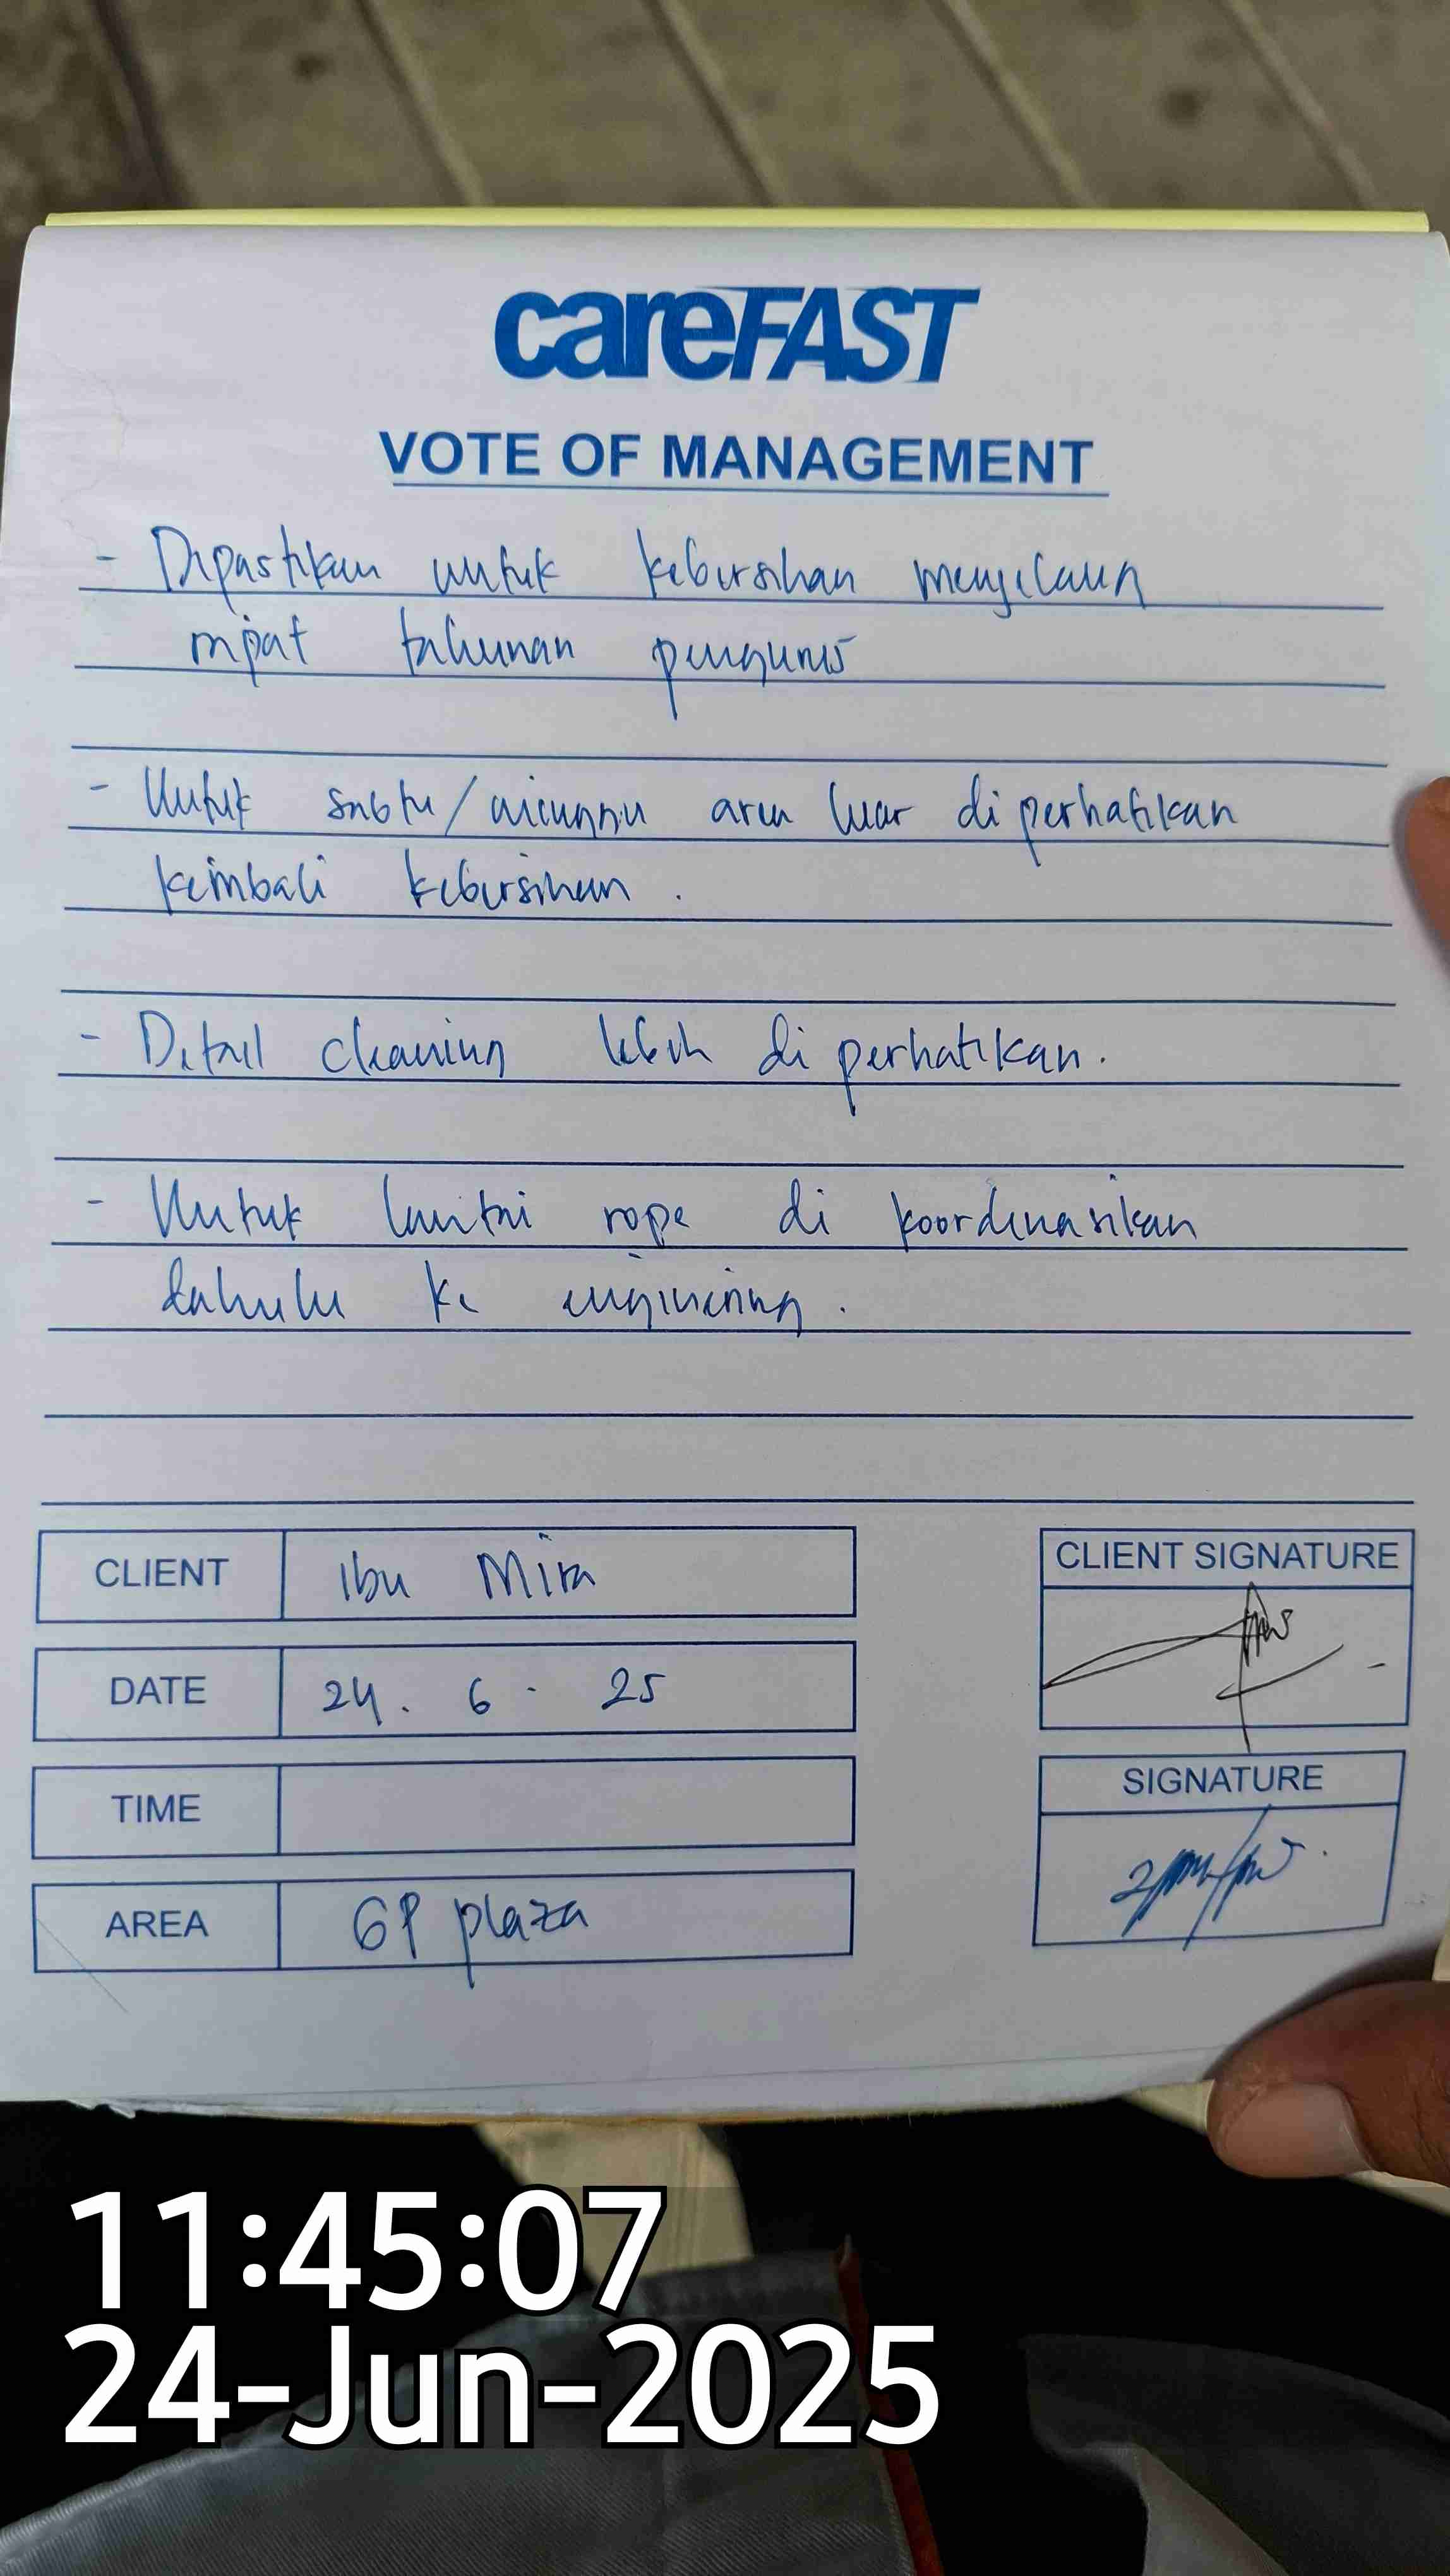 careFAST
VOTE OF MANAGEMENT
- Dipastikan untuk kebersihan menjelang
rapat tahunan pengurus
- Untuk sabtu/minggu area luar di perhatikan
kembali kebersihan.
- Detail cleaning lebih di perhatikan.
- Untuk lantai rope di koordinasikan
dahulu ke enginering.
CLIENT Ibu Mira
CLIENT SIGNATURE
DATE 24. 6. 25
TIME
SIGNATURE
AREA GP plaza
11:45:07
24-Jun-2025